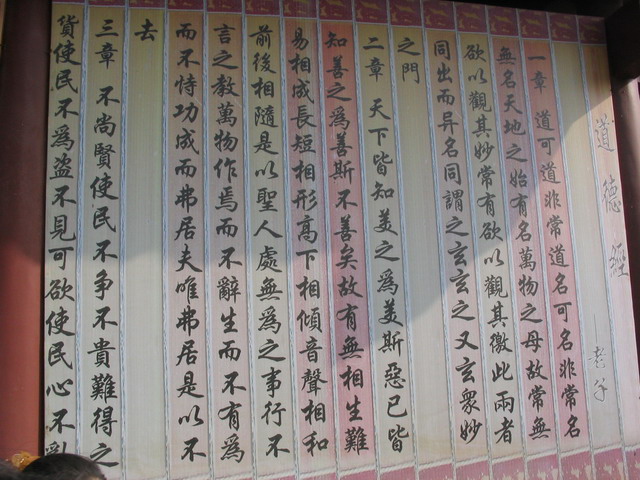 道德經
——老子
一章 道可道非常道名可名非常名
無名天地之始有名萬物之母故常無
欲以觀其妙常有欲以觀其徼此兩者
同出而异名同謂之玄玄之又玄衆妙
之門
二章 天下皆知美之為美斯惡已皆
知善之為善斯不善矣故有無相生難
易相成長短相形高下相傾音聲相和
前後相隨是以聖人處無為之事行不
言之教萬物作焉而不辭生而不有為
而不恃功成而弗居夫唯弗居是以不
去
三章 不尚賢使民不争不貴難得之
貨使民不為盗不見可欲使民心不亂